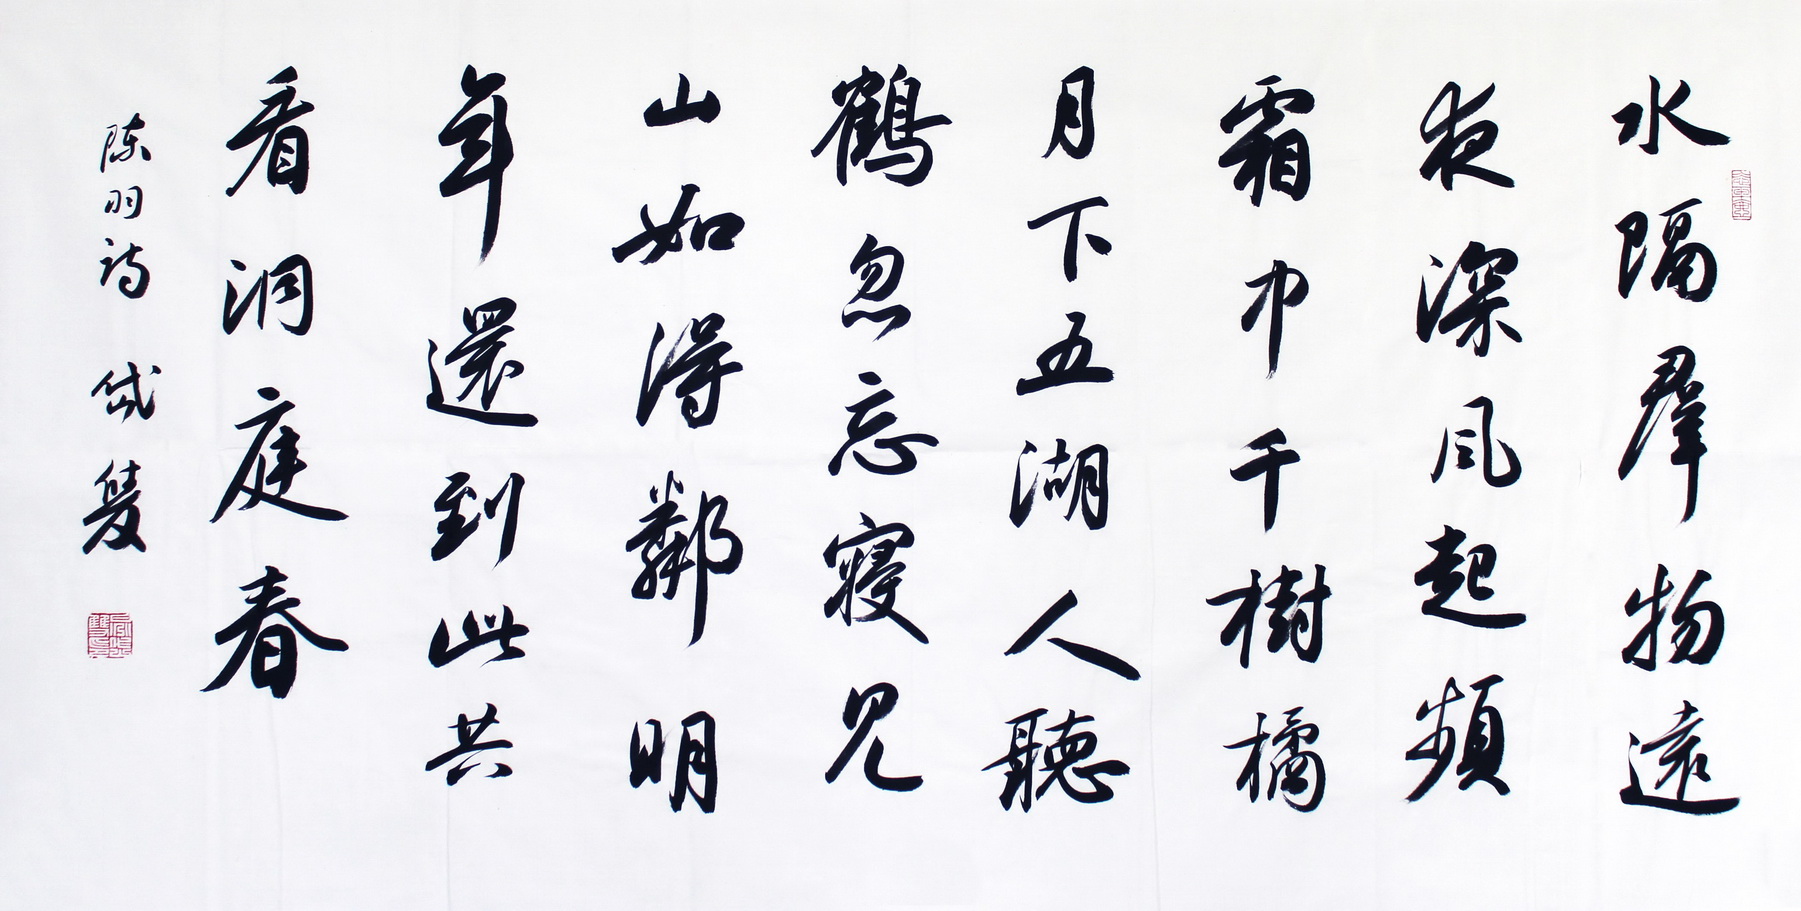 水隔羣物遠
夜深風起頻
霜中千樹橘
月下五湖人聽
鶴忽忘寢見
山如得鄰明
年還到此共
看洞庭春
陳羽詩 岱